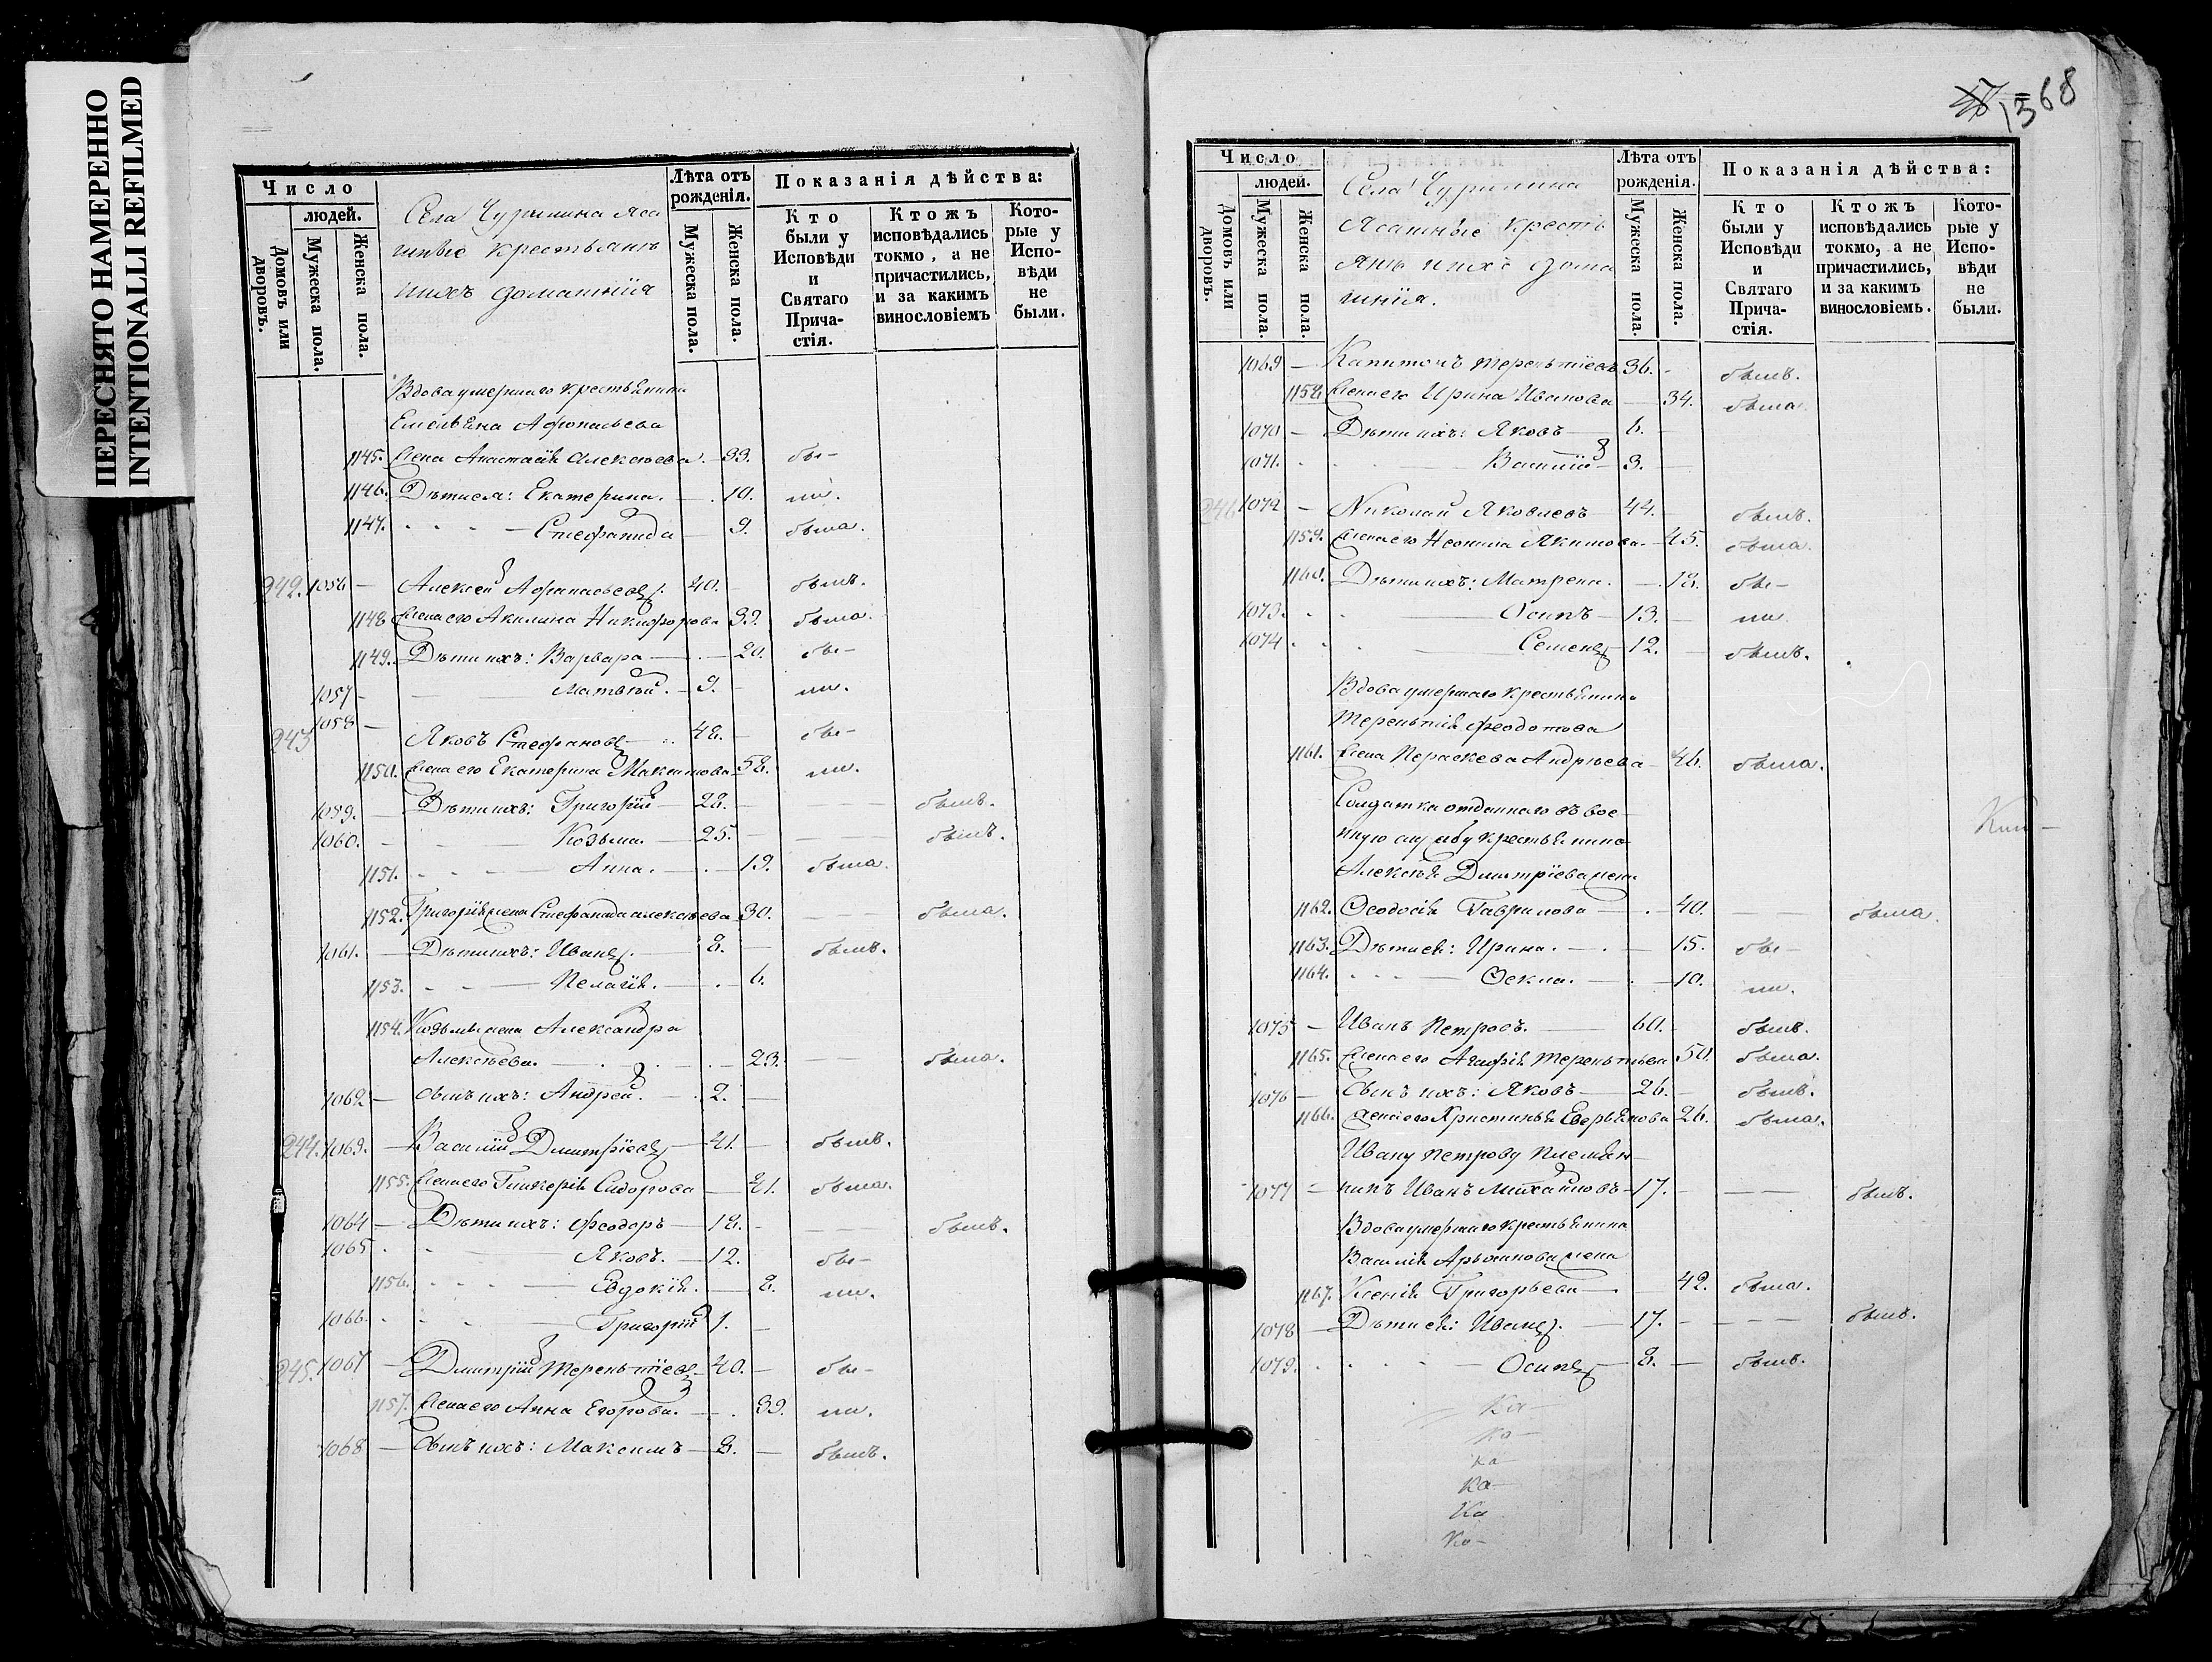 ПЕРЕСНЯТО НАМЕРЕННО
INTENTIONALLI REFILMED
Число
людей.
Домовъ или дворовъ.
Мужеска пола.
Женска пола.
Села Чурилина Яса
шные крестьянъ
ихъ домашнія
Лѣта отъ рожденія.
Мужеска пола.
Женска пола.
Показанія дѣйства:
Кто были у Исповѣди и Святаго Прича-стія.
Ктожъ исповѣдались токмо, а не причастились, и за какимъ винословіемъ
Кото-рые у Испо-вѣди не были.
Вдова умершаго крестьянина
Емельяна Афонасьева
1145. жена Анастасія Алексѣева. — 33. бы-
1146. Дѣти ея: Екатерина. — 10. ли.
1147. Стефанида — 9. была.
242. 1056 — Алексѣй Афанасьевъ. 40. — былъ.
1148 жена его Акилина Никифорова 39. была.
1149. Дѣти ихъ: Варвара — 20. бы-
1057 — Матвѣй. — 9. — ли.
243 1058 — Яковъ Стефановъ — 48. — бы-
1150. жена его Екатерина Максимова 58. ли.
1059. — Дѣти ихъ: Григорій — 28. — былъ.
1060. — Козьма. — 25. — былъ.
1151. Анна. — 19. была.
1152. Григорія жена Стефанида Алексѣева 30. — была.
1061. — Дѣти ихъ: Иванъ. 8. — былъ.
1153. — Пелагія. — 6.
1154. Козьмы жена Александра
Алексѣева. — 23. — была.
1062 — сынъ ихъ: Андрей. — 2. —
244. 1063. — Василій Димитріевъ — 41. — былъ.
1155. жена его Гликерія Сидорова — 41. была.
1064 — Дѣти ихъ: Феодоръ — 18. — былъ.
1065 Яковъ. — 12. бы-
1156. Евдокія. — 8. ли.
1066. Григорій 1. —
245. 1067 — Димитрій Терентіевъ — 40. — бы-
1157. жена его Анна Егорова. — 39. ли.
1068 — сынъ ихъ: Максимъ — 8. — былъ.
1368
Число
людей.
Домовъ или дворовъ.
Мужеска пола.
Женска пола.
Села Чурилина
Ясашные кресть
янъ и ихъ дома
шнія.
Лѣта отъ рожденія.
Мужеска пола.
Женска пола.
Показанія дѣйства:
Кто были у Исповѣди и Святаго Прича-стія.
Ктожъ исповѣдались токмо, а не причастились, и за какимъ винословіемъ.
Кото-рые у Испо-вѣди не были.
1069 — Капитонъ Терентіевъ 36. — былъ.
1158. жена его Ирина Иванова — 34. была.
1070 — Дѣти ихъ: Яковъ — 6. —
1071. Василій — 3. —
246 1072 — Николай Яковлевъ 44. — былъ.
1159. жена его Неонила Якимова. — 45. была.
1160. Дѣти ихъ: Матрена. — 18. бы-
1073. Осипъ — 13. — ли.
1074 Семенъ 12. — былъ.
Вдова умершаго крестьянина
Терентія Феодотова
1161. жена Параскева Андрѣева — 46. была.
Солдатка отданнаго въ вое-
нную службу крестьянина
Алексѣя Димитріева жена
1162. Ѳеодосія Гаврилова — 40. — была.
1163. Дѣти ея: Ирина. — 15. бы-
1164. Ѳекла. — 10. ли.
1075 — Иванъ Петровъ. — 60. — былъ.
1165. жена его Агафія Терентьева 50. была.
1076 — сынъ ихъ: Яковъ — 26. — былъ.
1166. жена его Христинья Аверьянова 26. была.
Ивану Петрову племян-
1077 — никъ Иванъ Михайловъ — 17. — былъ.
Вдова умершаго крестьянина
Василія жена
1167. Ксенія Григорьева — 42. была.
1078 — Дѣти ея: Иванъ. — 17. — былъ.
1079. Осипъ — 8. — былъ.
Ка-
Ка-
Ка-
Ка-
Ка
Ка-